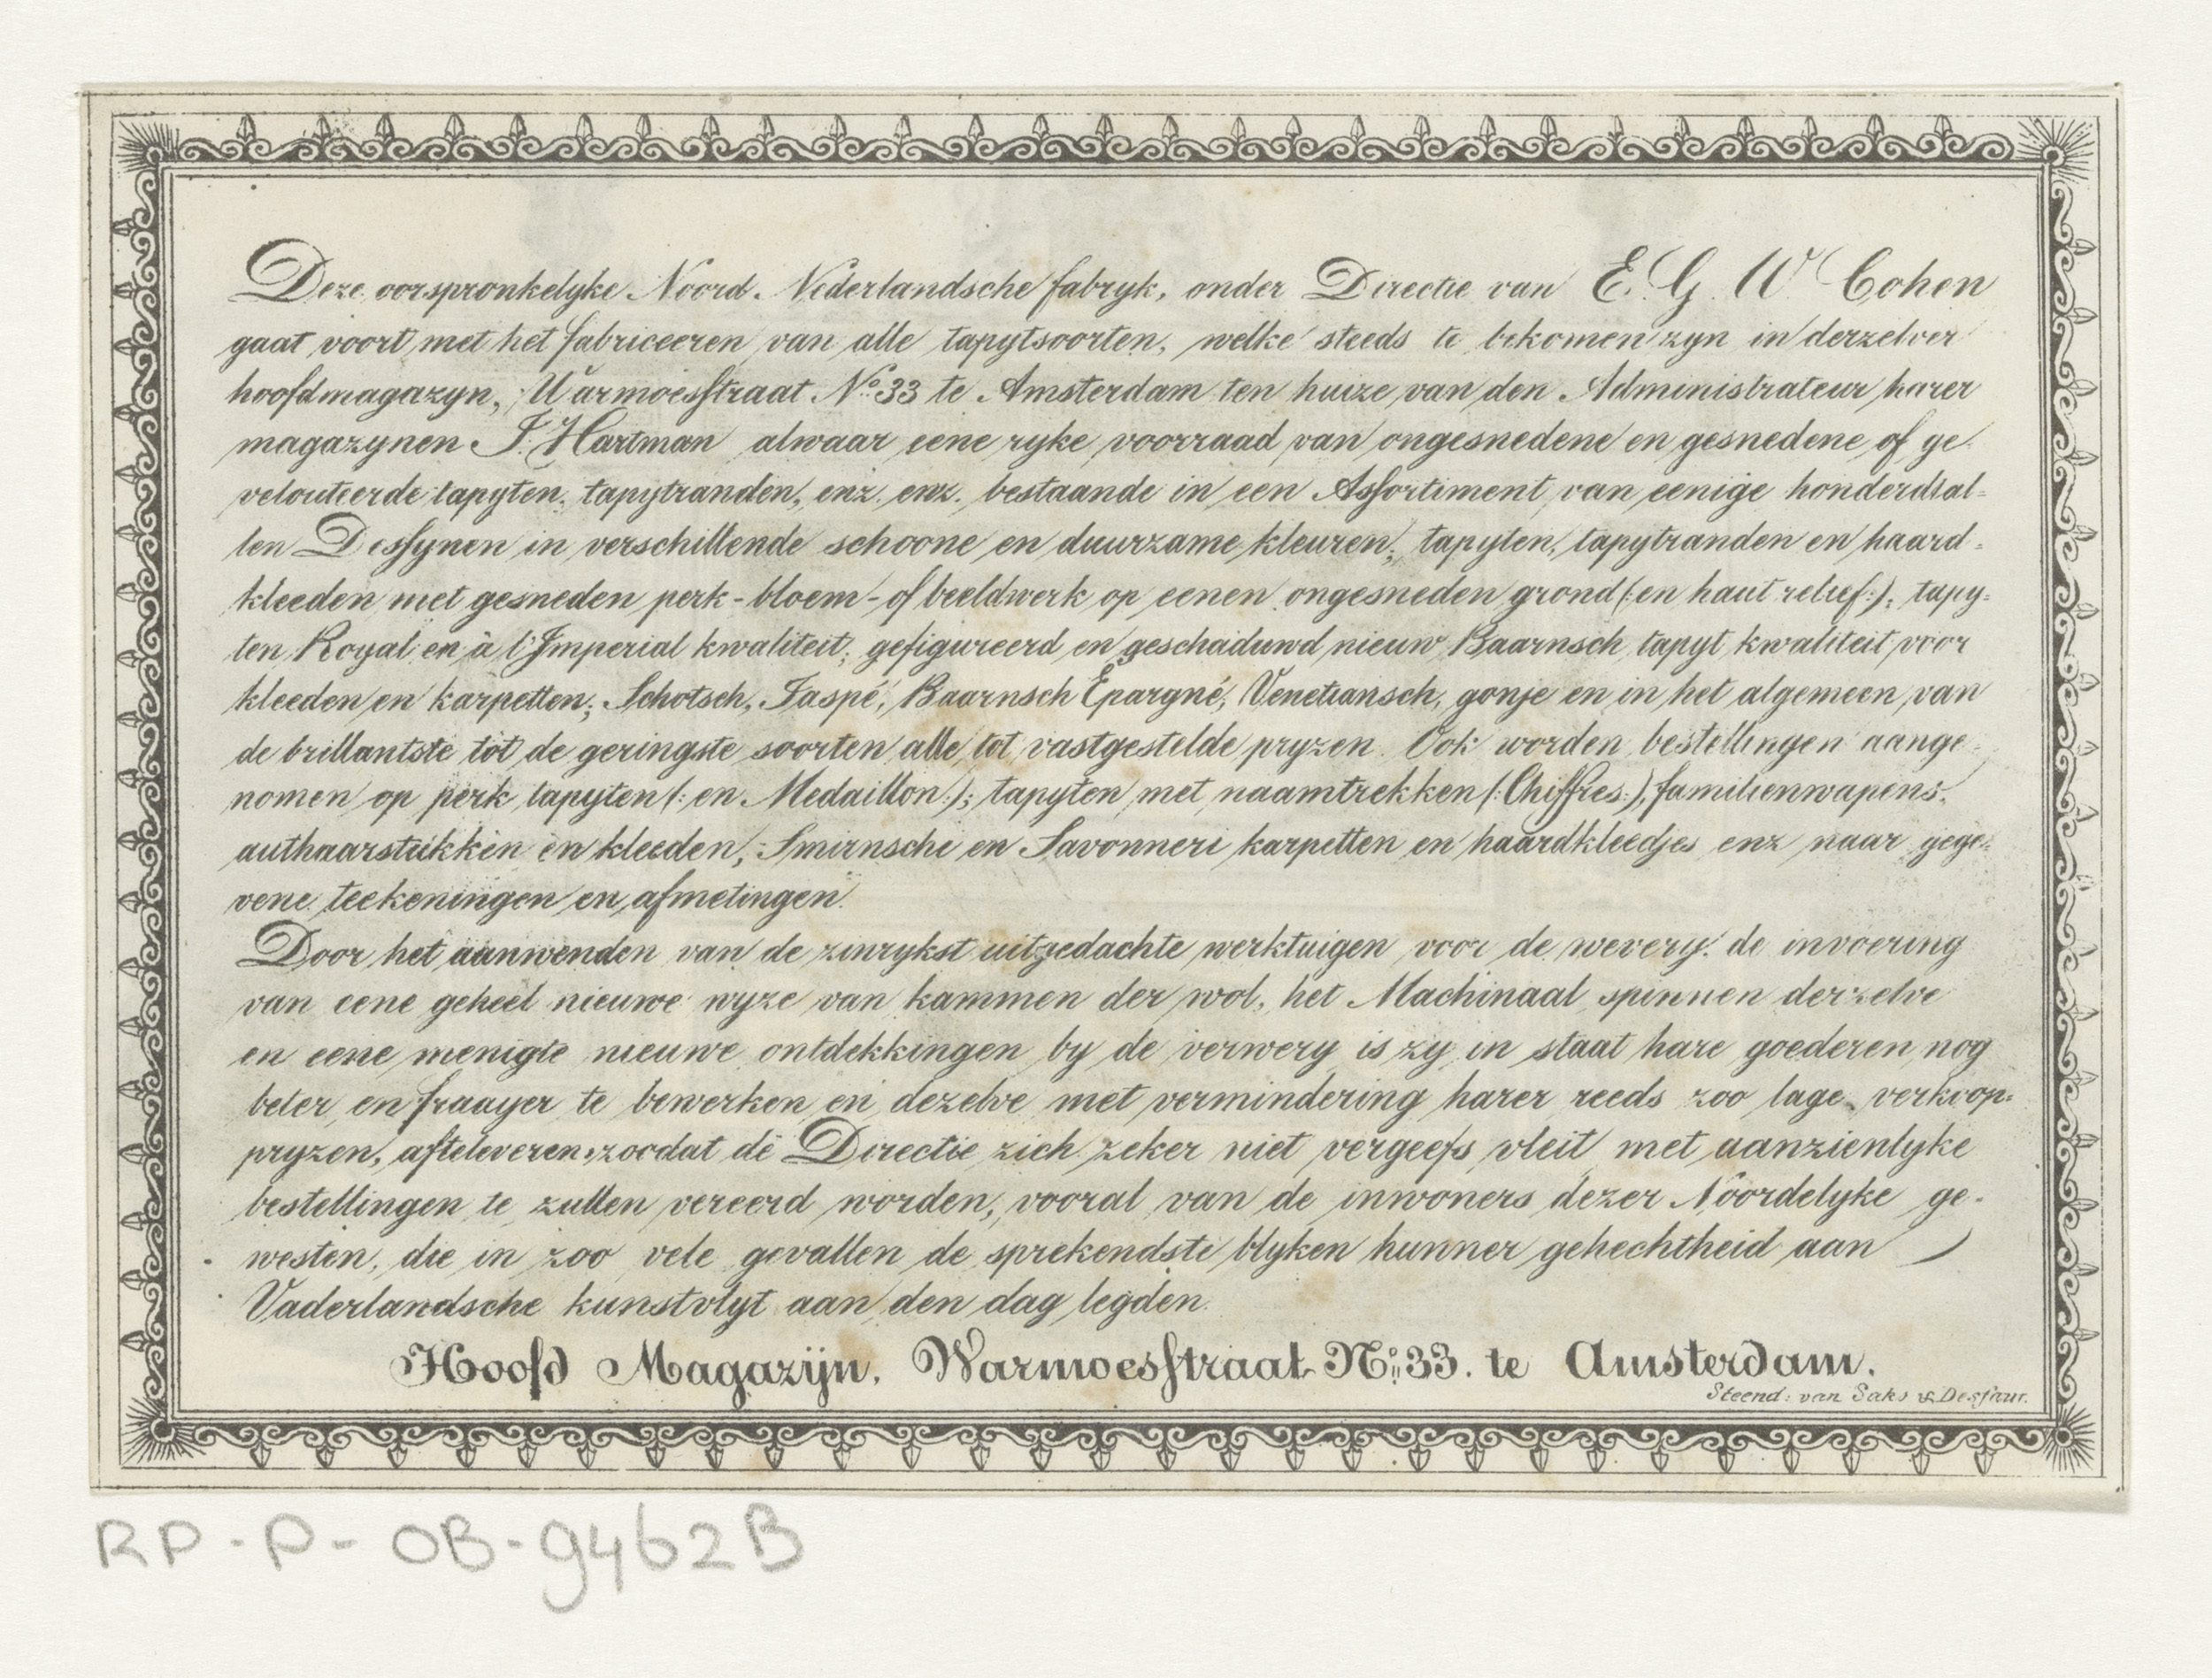 Deze oorspronkelyke Noord-Nederlandsche fabryk, onder Directie van E. G. W Cohen
gaat voort met het fabriceeren van alle tapytsoorten, welke steeds te bekomen zyn in derzelver
hoofdmagazyn, Warmoesstraat No 33 te Amsterdam ten huize van den Administrateur harer
magazynen J. Hartman alwaar eene ryke voorraad van ongesnedene en gesnedene of ge-
velouteerde tapyten, tapytranden, enz. enz. bestaande in een Assortiment van eenige honderdtal-
len Dessynen in verschillende schoone en duurzame kleuren; tapyten, tapytranden en haard-
kleeden met gesneden perk-bloem-of beeldwerk op eenen ongesneden grond (:en haut relief:); tapy-
ten Royal en à l'Imperial kwaliteit; gefigureerd en geschaduwd nieuw Baarnsch tapyt kwaliteit voor
kleeden en karpetten; Schotsch, Jaspé, Baarnsch Epargné, Venetiansch, gonje en in het algemeen van
de brillantste tot de geringste soorten alle tot vastgestelde pryzen. Ook worden bestellingen aange-
nomen op perk tapyten (:en Medaillon:); tapyten met naamtrekken (:Chiffres:), familienwapens,
authaarstukken en kleeden, Smirnsche en Savonneri karpetten en haardkleedjes enz naar gege-
vene teekeningen en afmetingen.
Door het aanwenden van de zinrykst uitgedachte werktuigen voor de wevery: de invoering
van eene geheel nieuwe wyze van kammen der wol, het Machinaal spinnen derzelve
en eene menigte nieuwe ontdekkingen by de verwery is zy in staat hare goederen nog
beter en fraayer te bewerken en dezelve met vermindering harer reeds zoo lage verkoop-
pryzen, afteleveren, zoodat de Directie zich zeker niet vergeefs vleit met aanzienlyke
bestellingen te zullen vereerd worden, vooral van de inwoners dezer Noordelyke ge-
westen, die in zoo vele gevallen de sprekendste blyken hunner gehechtheid aan
Vaderlandsche kunstvlyt aan den dag legden.
Hoofd Magazijn, Warmoesstraat No 33. te Amsterdam.
Steend: van Saks & Desfaur.
RP-P-OB-9462B